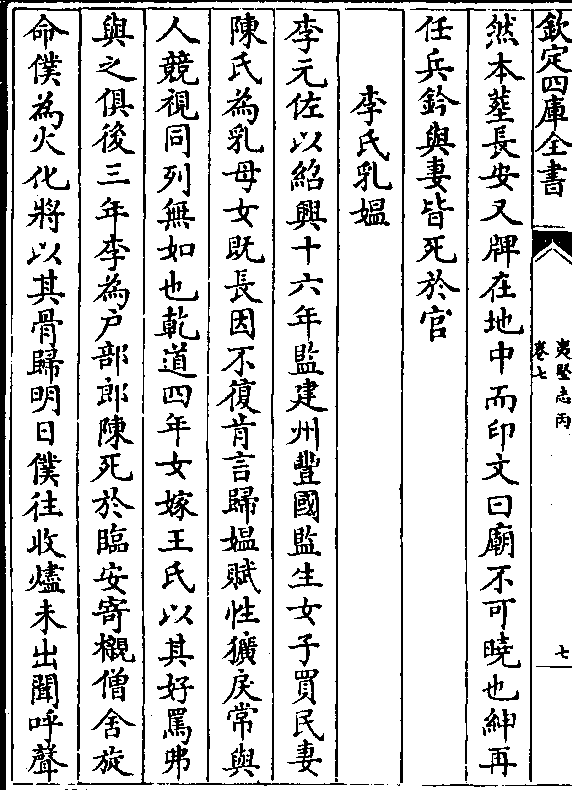 欽定四庫全書
夷堅志丙
卷七
七
然本塟長安又牌在地中而印文曰廟不可曉也紳再
任兵鈐與妻皆死於官
李氏乳媼
李元佐以紹興十六年監建州豐國監生女子買民妻
陳氏為乳母女既長因不復肯言歸媼賦性獷戾常與
人競視同列無如也乾道四年女嫁王氏以其好罵弗
與之俱後三年李為戶部郎陳死於臨安寄櫬僧舍旋
命僕為火化將以其骨歸明日僕往收燼未出聞呼聲